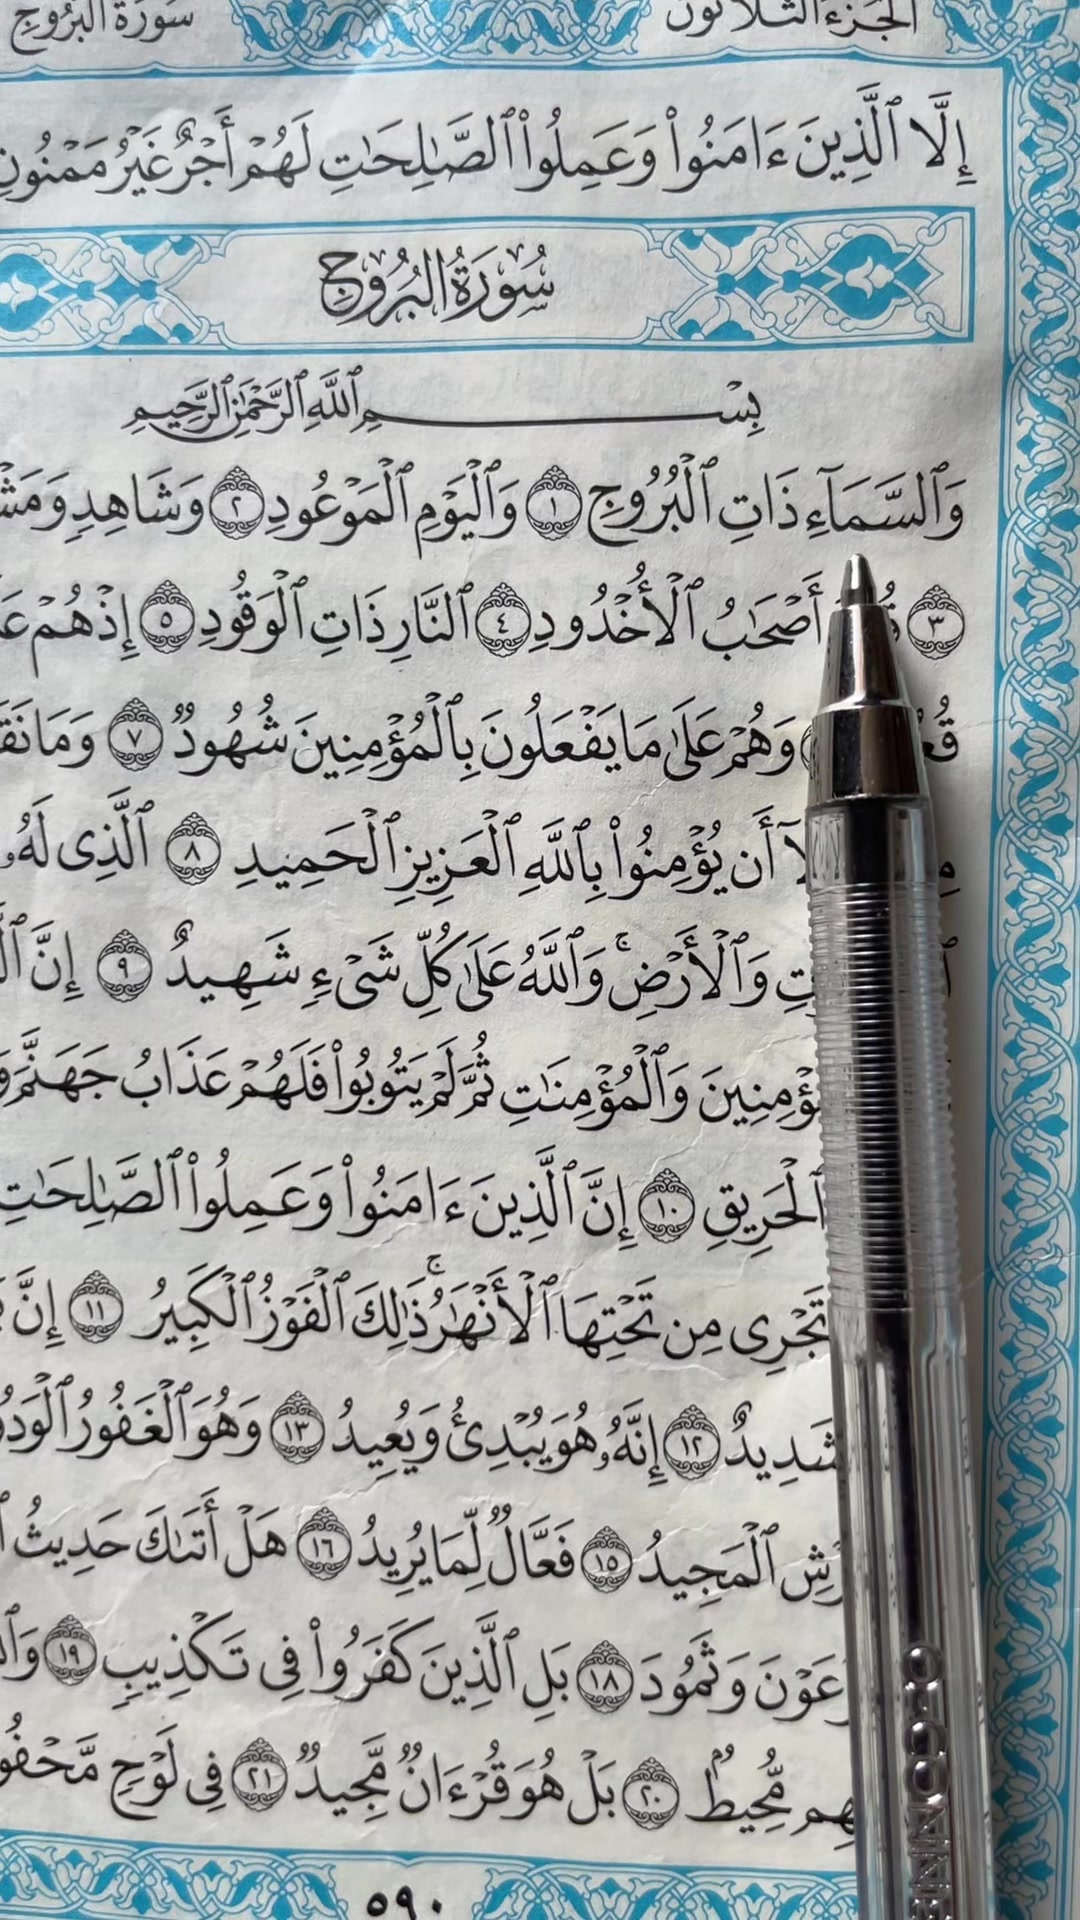 الجزء الثلاثون سورة البروج
إِلَّا ٱلَّذِينَ ءَامَنُوا۟ وَعَمِلُوا۟ ٱلصَّـٰلِحَـٰتِ لَهُمْ أَجْرٌ غَيْرُ مَمْنُونٍ
سُورَةُ البُرُوجِ
بِسْمِ ٱللَّهِ ٱلرَّحْمَـٰنِ ٱلرَّحِيمِ
وَٱلسَّمَآءِ ذَاتِ ٱلْبُرُوجِ ١ وَٱلْيَوْمِ ٱلْمَوْعُودِ ٢ وَشَاهِدٍ
٣ أَصْحَـٰبُ ٱلْأُخْدُودِ ٤ ٱلنَّارِ ذَاتِ ٱلْوَقُودِ ٥ إِذْ هُمْ
وَهُمْ عَلَىٰ مَا يَفْعَلُونَ بِٱلْمُؤْمِنِينَ شُهُودٌ ٧ وَمَا
أَن يُؤْمِنُوا۟ بِٱللَّهِ ٱلْعَزِيزِ ٱلْحَمِيدِ ٨ ٱلَّذِى لَهُۥ
وَٱلْأَرْضِ ۚ وَٱللَّهُ عَلَىٰ كُلِّ شَىْءٍ شَهِيدٌ ٩ إِنَّ
وَٱلْمُؤْمِنَـٰتِ ثُمَّ لَمْ يَتُوبُوا۟ فَلَهُمْ عَذَابُ جَهَنَّمَ
ٱلْحَرِيقِ ١٠ إِنَّ ٱلَّذِينَ ءَامَنُوا۟ وَعَمِلُوا۟ ٱلصَّـٰلِحَـٰتِ
تَجْرِى مِن تَحْتِهَا ٱلْأَنْهَـٰرُ ۚ ذَٰلِكَ ٱلْفَوْزُ ٱلْكَبِيرُ ١١ إِنَّ
شَدِيدٌ ١٢ إِنَّهُۥ هُوَ يُبْدِئُ وَيُعِيدُ ١٣ وَهُوَ ٱلْغَفُورُ
ٱلْمَجِيدُ ١٥ فَعَّالٌ لِّمَا يُرِيدُ ١٦ هَلْ أَتَىٰكَ حَدِيثُ
وَثَمُودَ ١٨ بَلِ ٱلَّذِينَ كَفَرُوا۟ فِى تَكْذِيبٍ ١٩
مُّحِيطٌۢ ٢٠ بَلْ هُوَ قُرْءَانٌ مَّجِيدٌ ٢١ فِى لَوْحٍ
٥٩٠